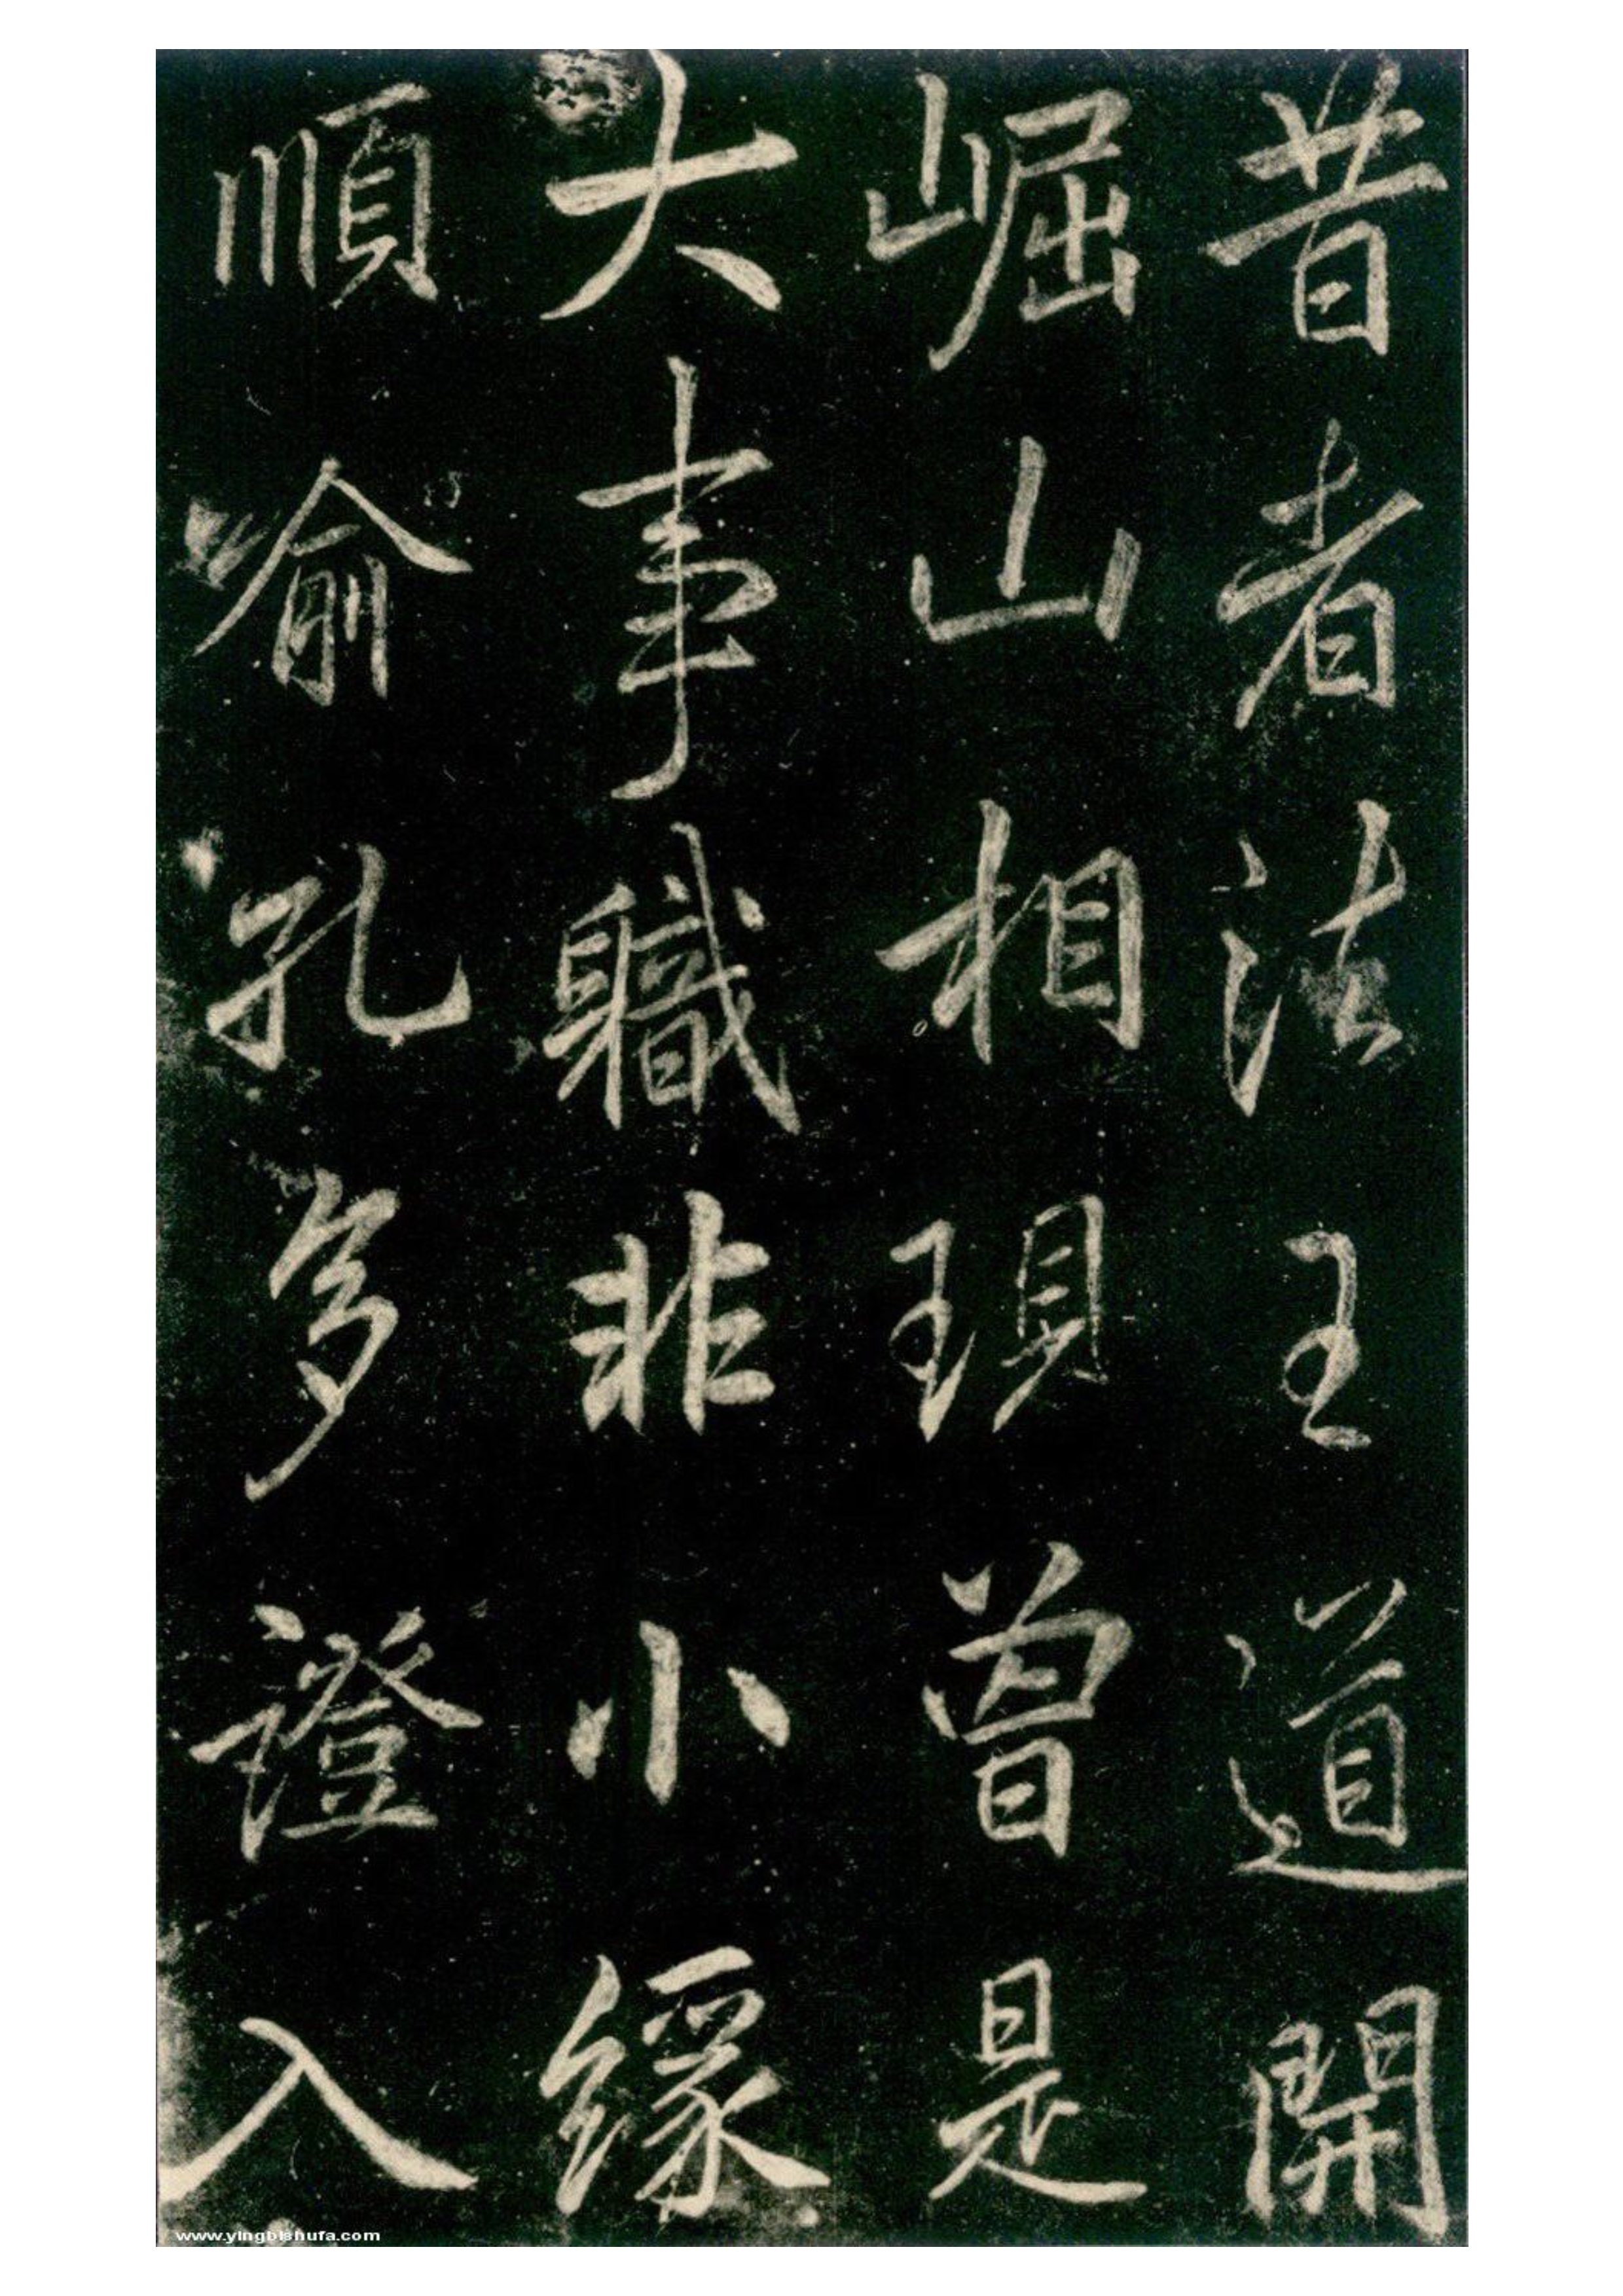 昔者法王道開
崛山相現曾是
大事職非小緣
順喻孔多證入
www.yingbishufa.com